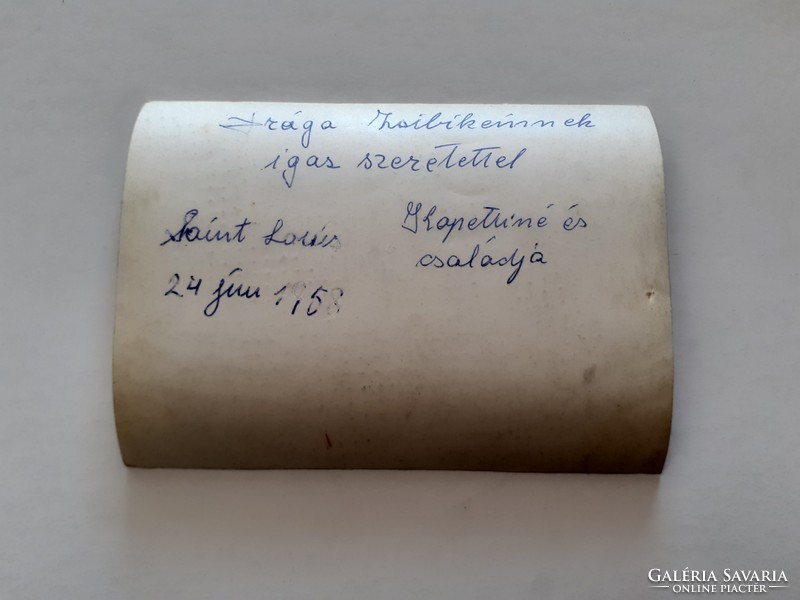 Drága Zsibikéimnek
igaz szeretettel
Saint Louis
24 jún 1958
Kopettiné és
családja
GALÉRIA SAVARIA
ONLINE PIACTÉR